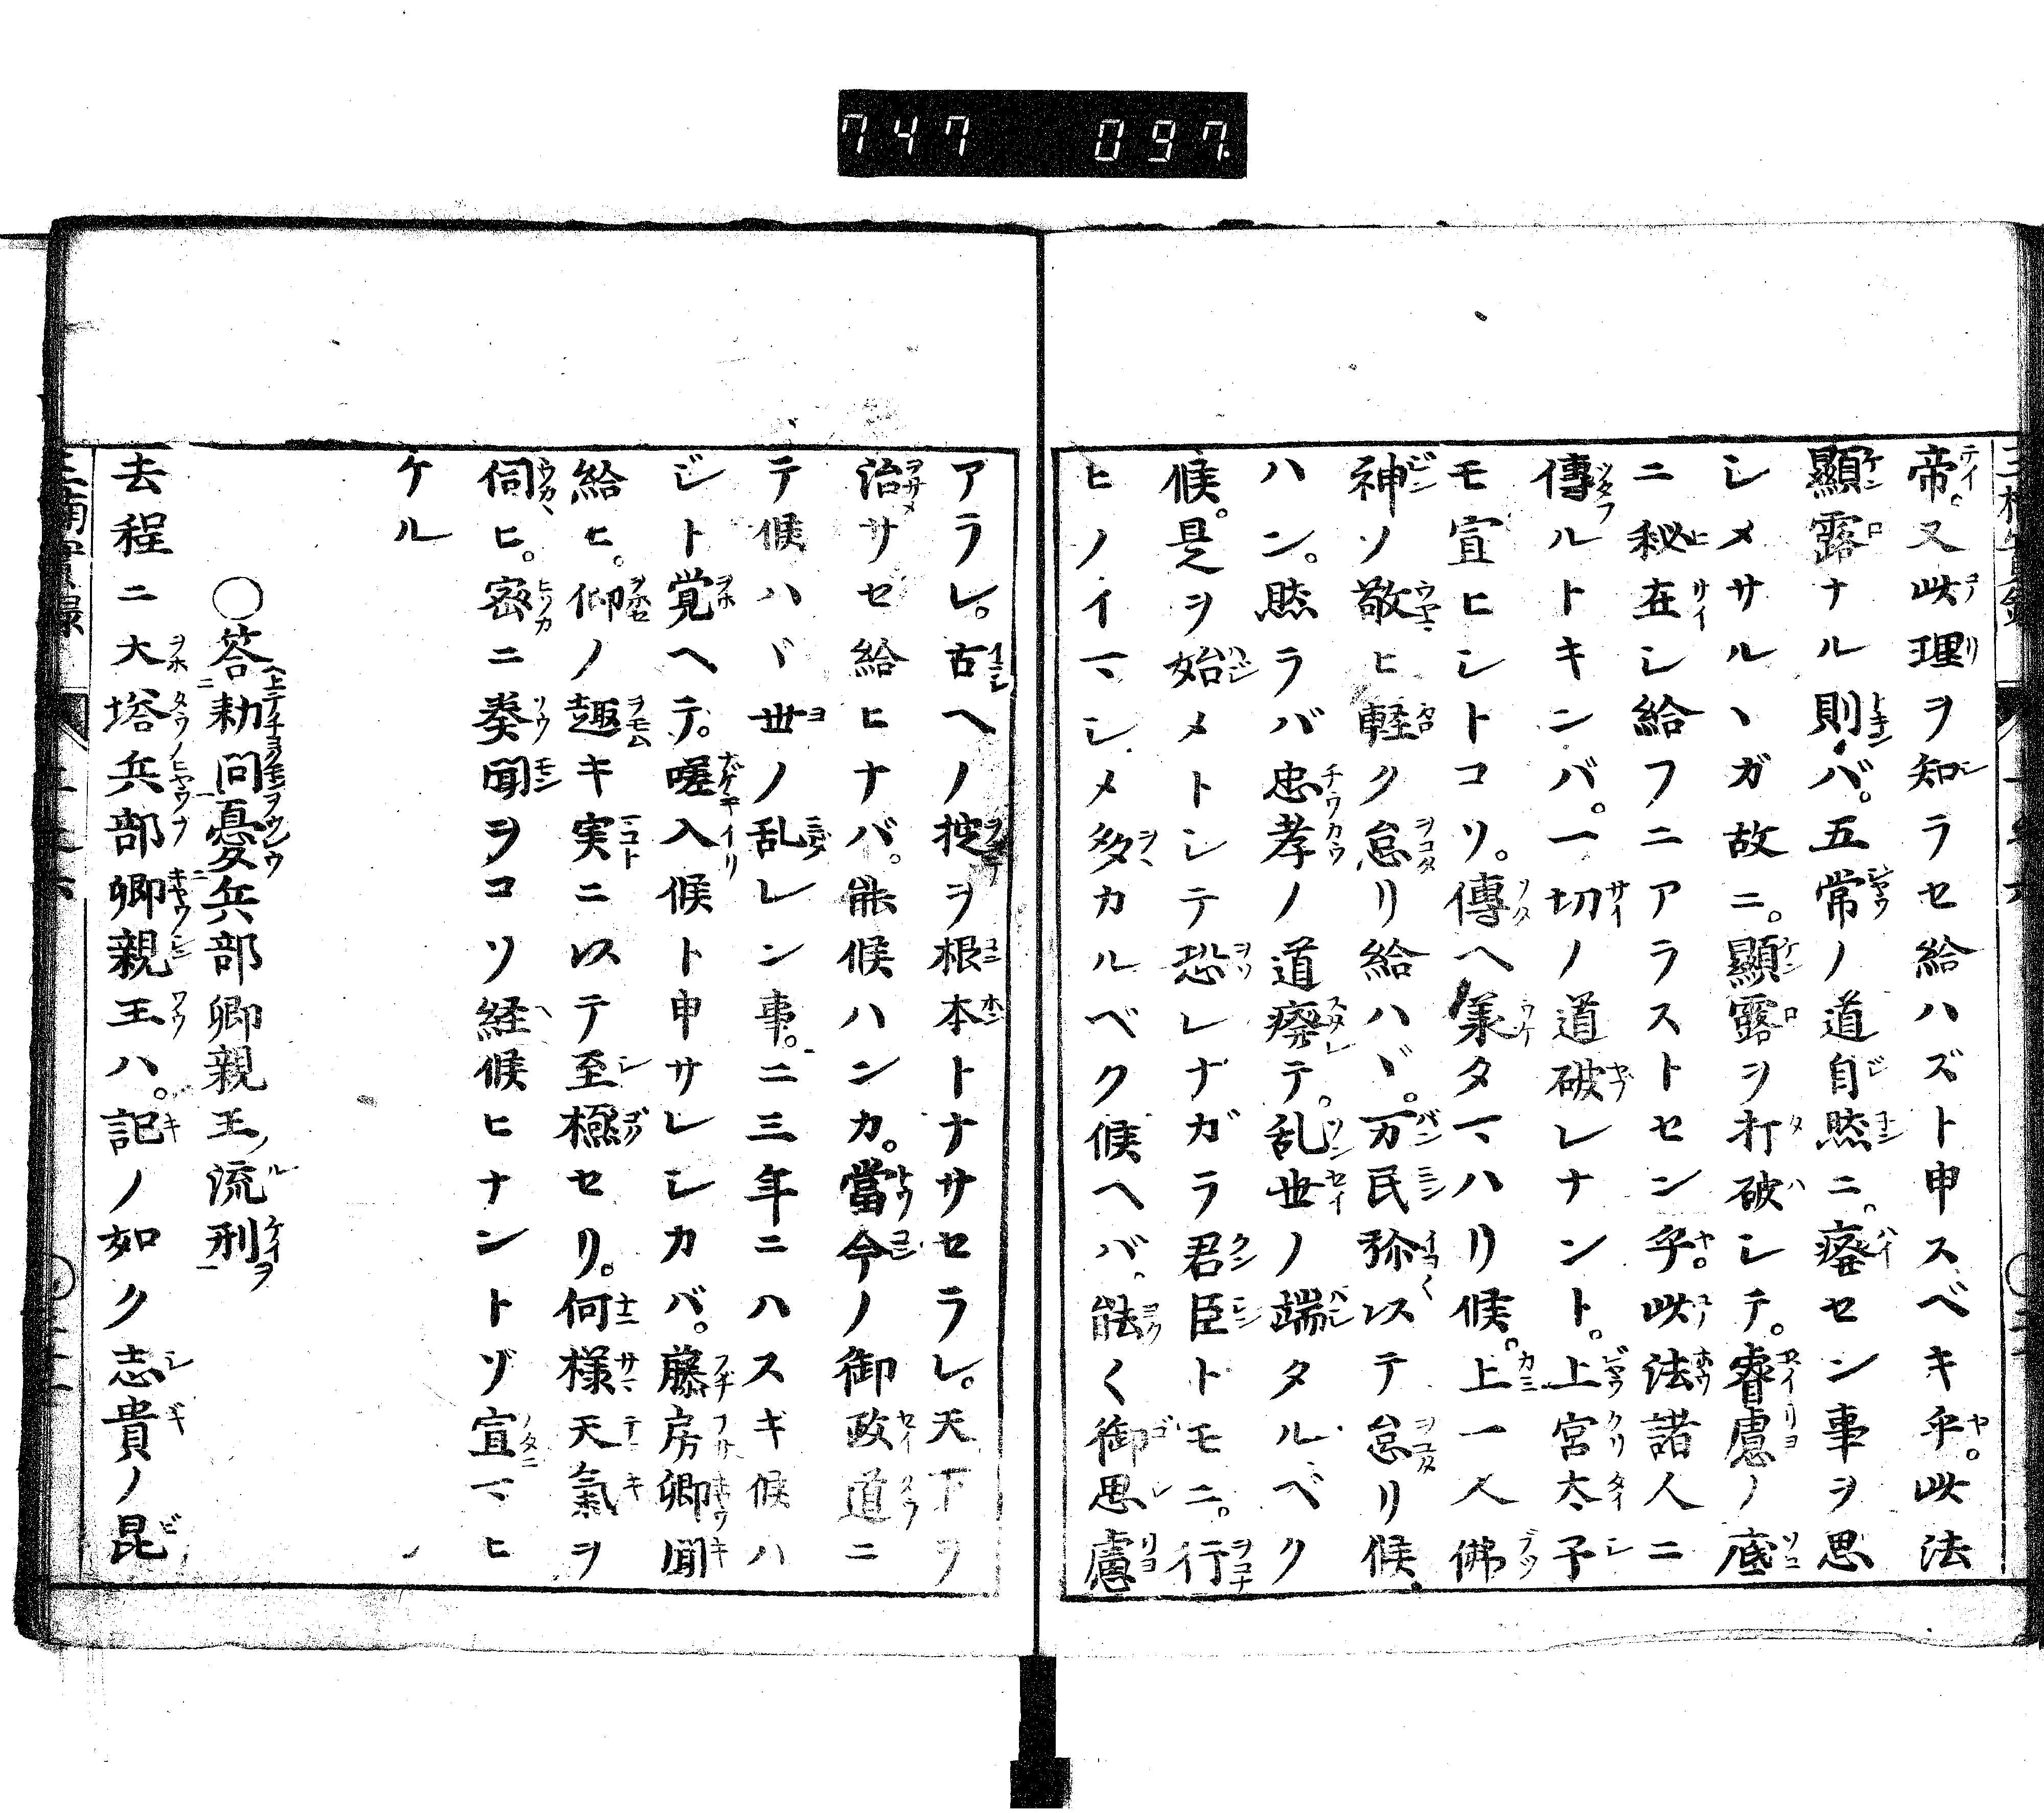 747 097
帝。又此理ヲ知ラセ給ハズト申スベキ乎。此法
顯露ナル則バ。五常ノ道自然ニ。癈セン事ヲ思
シメサルヽガ故ニ。顯露ヲ打破シテ。睿慮ノ底
ニ秘在シ給フニアラストセン乎。此法諸人ニ
傳ルトキンバ。一切ノ道破レナント。上宮太子
モ宣ヒシトコリ。傳ヘ美タマハリ候。上一人佛
神ソ敬ヒ軽ク怠リ給ハヾ。万民弥以テ怠リ候
ハン。然ラバ忠孝ノ道癈テ。乱世ノ端タルベク
候。是ヲ始メトシテ恐レナガラ君臣トモニ。行
ヒノイマシメ多カルベク候ヘバ。能く御思慮
アラレ。古ヘノ掟ヲ根本トナサセラレ。天下ヲ
治サセ給ヒナバ。能候ハンカ。當今ノ御政道ニ
テ候ハヾ世ノ乱レン事。二三年ニハスギ候ハ
ジト覚ヘテ。嗟入候ト申サレシカバ。藤房卿聞
給ヒ。仰ノ趣キ実ニ以テ至極セリ。何様天氣ヲ
伺ヒ。密ニ奏聞ヲコソ経候ヒナントゾ宣マヒ
ケル
○答勅問憂兵部卿親王ノ流刑
去程ニ大塔兵部卿親王ハ。記ノ如ク志貴ノ昆